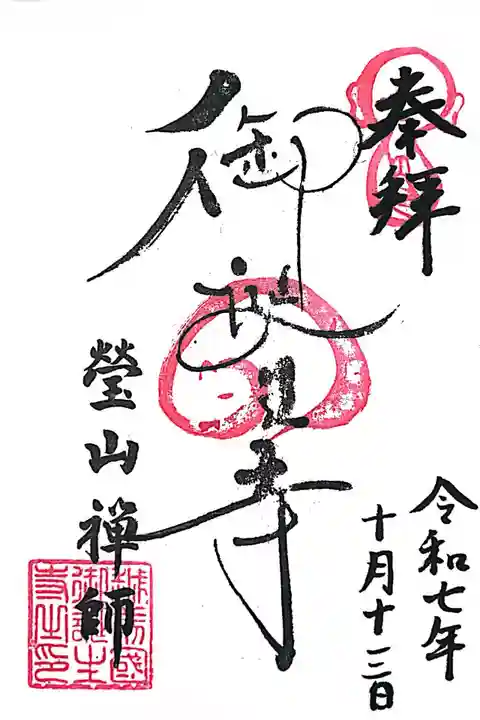 奉拜
御誕生寺
瑩山禅師
越前國
御誕生
寺之印
令和七年
十月十三日